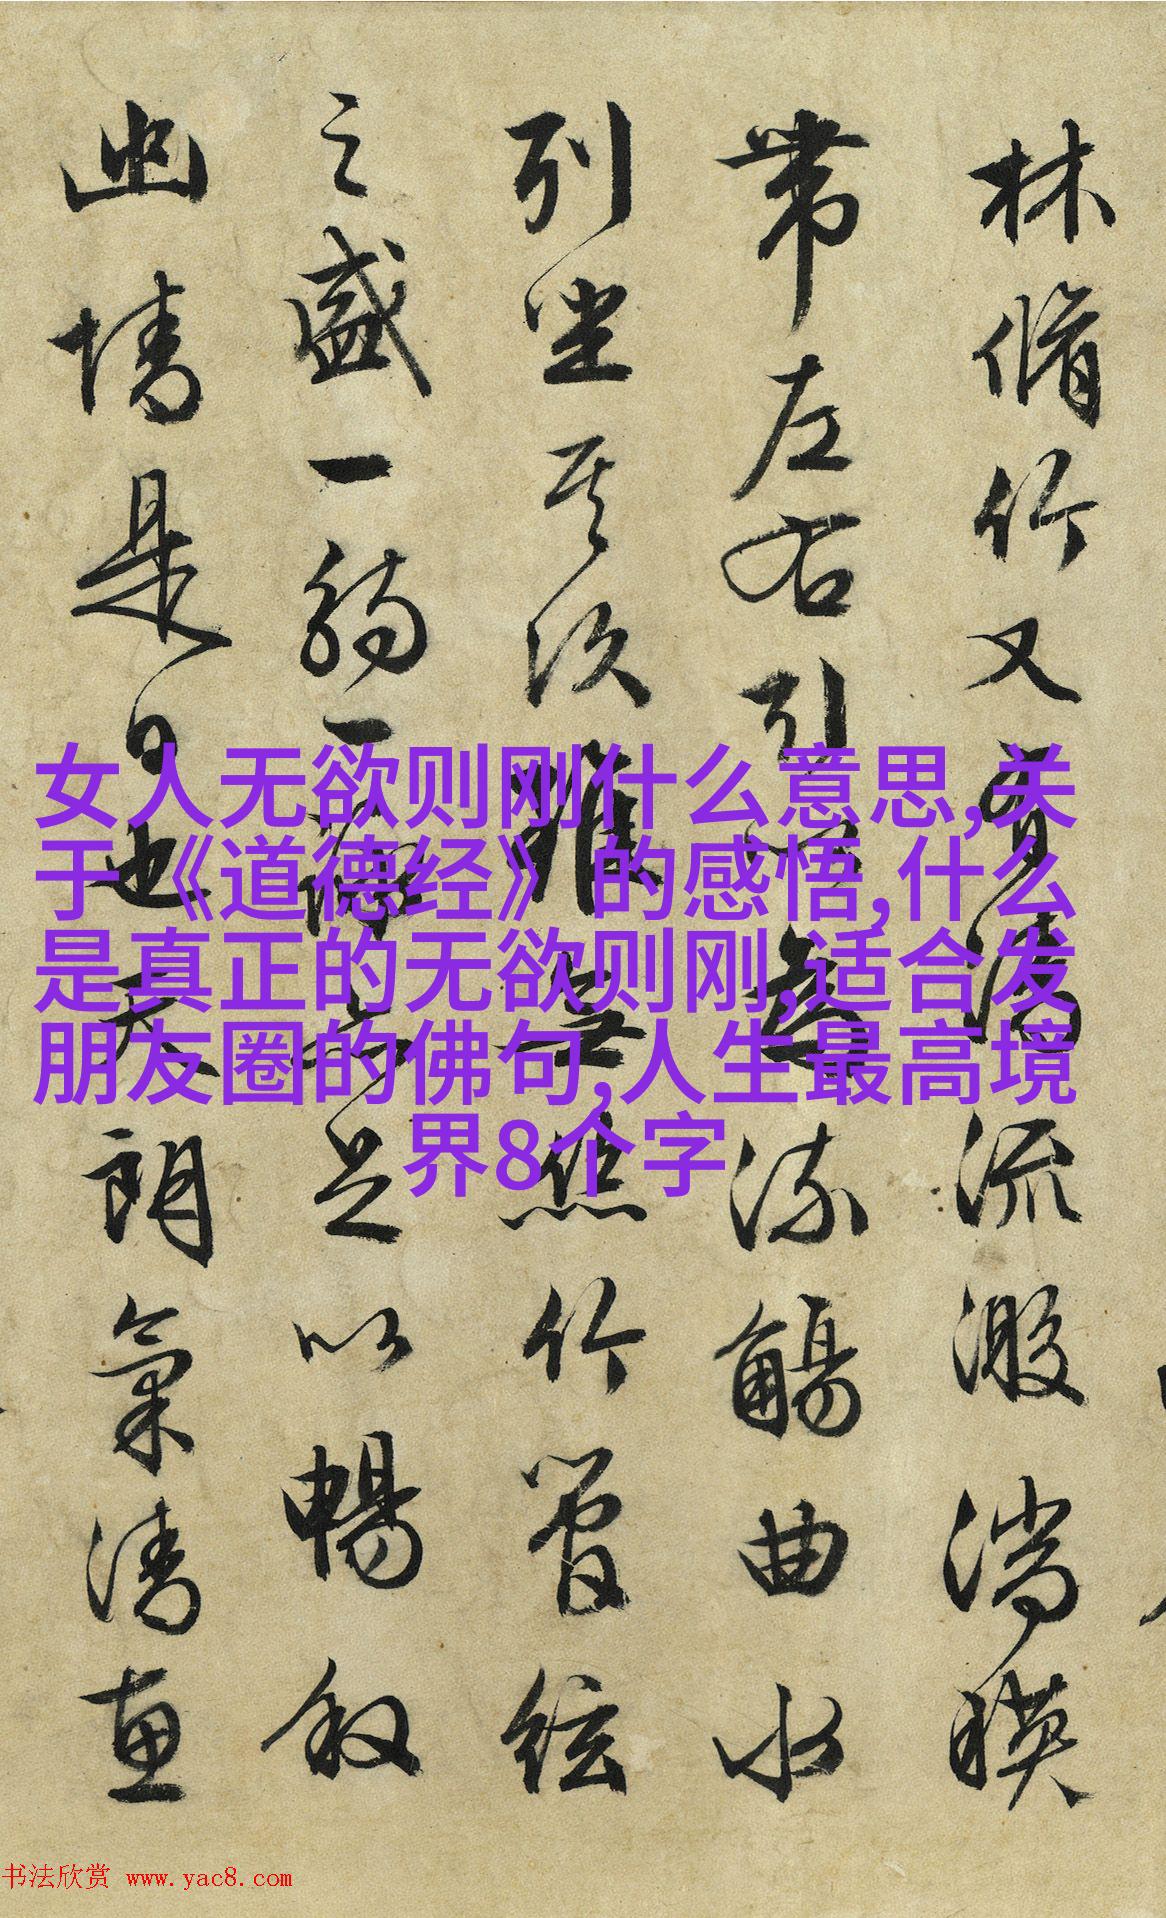 林脩竹又有清流激湍暎
帶左右引以為流觴曲水
列坐其次雖無絲竹管絃
之盛一觴一詠亦足以暢敘
幽情是日也天朗氣清惠
女人无欲则刚什么意思,关
于《道德经》的感悟,什么
是真正的无欲则刚,适合发
朋友圈的佛句,人生最高境
界8个字
书法欣赏 www.yac8.com